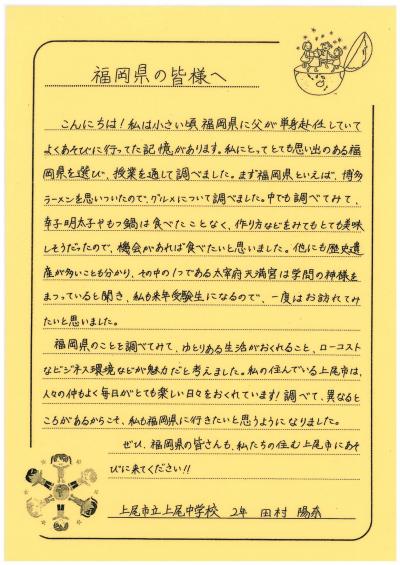 福岡県の皆様へ
こんにちは！私は小さい頃福岡県に父が単身赴任していて
よくあそびに行ってた記憶があります。私にとってとても思い出のある福
岡県を選び、授業を通して調べました。まず福岡県といえば、博多
ラーメンを思いついたので、グルメについて調べました。中でも調べてみて、
辛子明太子やもつ鍋は食べたことなく、作り方などをみてもとても美味
しそうだったので、機会があれば食べたいと思いました。他にも歴史遺
産が多いことも分かり、その中の1つである太宰府天満宮は学問の神様を
まつっていると聞き、私も来年受験生になるので、一度はお訪れてみ
たいと思いました。
福岡県のことを調べてみて、ゆとりある生活がおくれること、ローコスト
なビジネス環境などが魅力だと考えました。私の住んでいる上尾市は、
人々の仲もよく毎日がとても楽しい日々をおくれています！調べて、異なると
ころがあるからこそ、私も福岡県に行きたいと思うようになりました。
ぜひ、福岡県の皆さんも、私たちの住む上尾市にあそ
びに来てください!!
上尾市立上尾中学校 2年 田村 陽